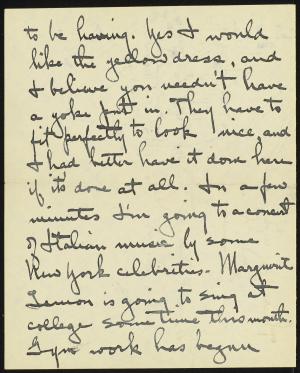 to be having. Yes I would
like the yellow dress, and
I believe you needn't have
a yoke put in. They have to
fit perfectly to look nice, and
I had better have it done here
if it's done at all. In a few
minutes I'm going to a concert
of Italian music by some
New York celebrities. Marguerit
Lemon is going to sing at
college some time this month.
Gym work has begun